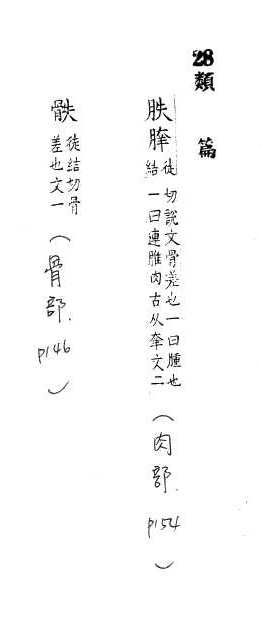 28類篇
胅䏲徒結切說文骨差也一曰腫也一曰連脽肉古从𡘋文二(肉部.p154)
䯎徒結切骨差也文一(骨部.p146)